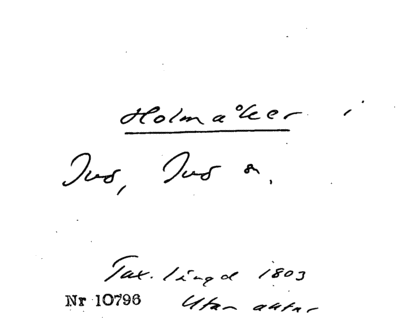 Holmåker i
Jus, Jus s.
Tax. längd 1803
Nr 10796 Utan antar